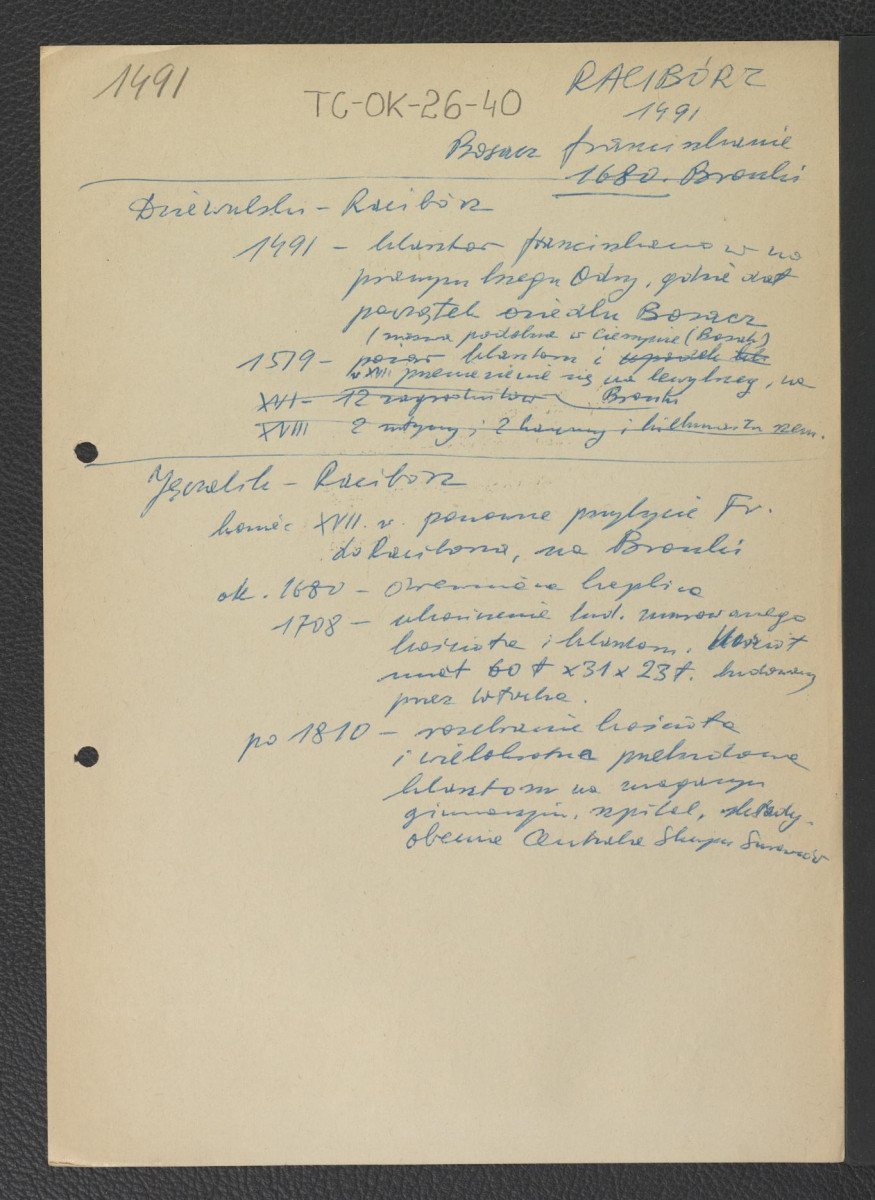 1491
TC-OK-26-40
RACIBÓRZ
1491
Bosacz franciszkanie
1680. Bronki
Dziewulski – Racibórz
1491 – klasztor franciszkanów na
prawym brzegu Odry, gdzie dał
początek osiedlu Bosacz
(nazwa podobna w Cieszynie (Bosak)
1519 – pożar klasztoru i
w XVII przeniesienie się na lewy brzeg, na
XVI – 12 zagrodników Bronki
XVIII 2 młyny i 2 karczmy i kilkunastu
– Racibórz
koniec XVII. w. ponowne przybycie Fr.
do Raciborza, na Bronki
ok. 1680 – drewniana kaplica
1708 – ukończenie bud. murowanego
kościoła i klasztoru. Kościół
miał 60 ł x 31 x 23 ł. budowany
przez Włocha.
po 1810 – rozebranie kościoła
i wielokrotna przebudowa
klasztoru na magazyn
gimnazjum, szpital, składy,
obecnie Centrala Skupu Surowców